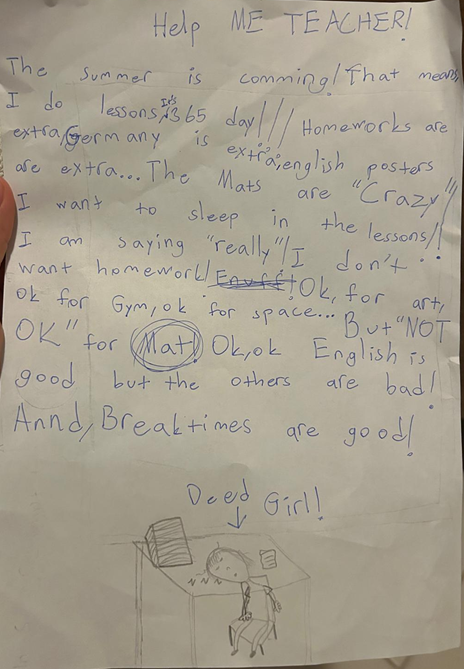 Help ME TEACHER!
The summer is comming! That means,
I do lessons, It's 365 day!!! Homeworks are
extra, Germany is extra, english posters
are extra... The Mats are "Crazy"!
I want to sleep in the lessons!!
I am saying "really"! I don't
want homework! Enuff! Ok, for art,
ok for Gym, ok for space... But "NOT
OK" for Mat! Ok, ok English is
good but the others are bad!
Annd, Breaktimes are good!
Deed Girl!